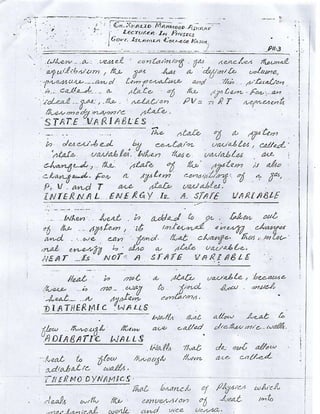 CH. KHALID MAHMOOD ASHRAF
LECTURER IN PHYSICS
GOVT. ISLAMIA COLLEGE KASUR.
PH-3
When a vessel containing gas reaches thermal
equilibrium, the gas has a definite volume,
pressure and temperature and this situation
is called a state of the system. For an
ideal gas, the relation PV = nRT represents
thermodynamic state.
STATE VARIABLES
The state of a system
is described by certain variables, called
'state variables'. When these variables are
changed, the state of the system is also
changed. For a system consisting of a gas,
P, V and T are state variables.
INTERNAL ENERGY IS A STATE VARIABLE
When heat is added to or taken out
of the system, its internal energy changes
and we can find that change thus, inter
nal energy is also a state variable.
HEAT IS NOT A STATE VARIABLE
Heat is not a state variable, because
there is no way to find how much
heat a system contains.
DIATHERMIC WALLS
Walls that allow heat to
flow through them are called diathermic walls.
ADIABATIC WALLS
Walls that do not allow
heat to flow through them are called
adiabatic walls.
THERMODYNAMICS
That branch of Physics which
deals with the conversion of heat into
mechanical work and vice versa.